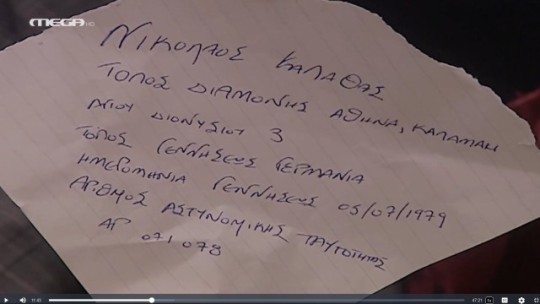 MEGA HD
ΝΙΚΟΛΑΟΣ ΚΑΛΑΘΑΣ
ΤΟΠΟΣ ΔΙΑΜΟΝΗΣ ΑΘΗΝΑ, ΚΑΛΑΜΑΚΙ
ΑΓΙΟΥ ΔΙΟΝΥΣΙΟΥ 3
ΤΟΠΟΣ ΓΕΝΝΗΣΕΩΣ ΓΕΡΜΑΝΙΑ
ΗΜΕΡΟΜΗΝΙΑ ΓΕΝΝΗΣΕΩΣ 05/07/1979
ΑΡΙΘΜΟΣ ΑΣΤΥΝΟΜΙΚΗΣ ΤΑΥΤΟΤΗΤΑΣ
ΑΡ 071078